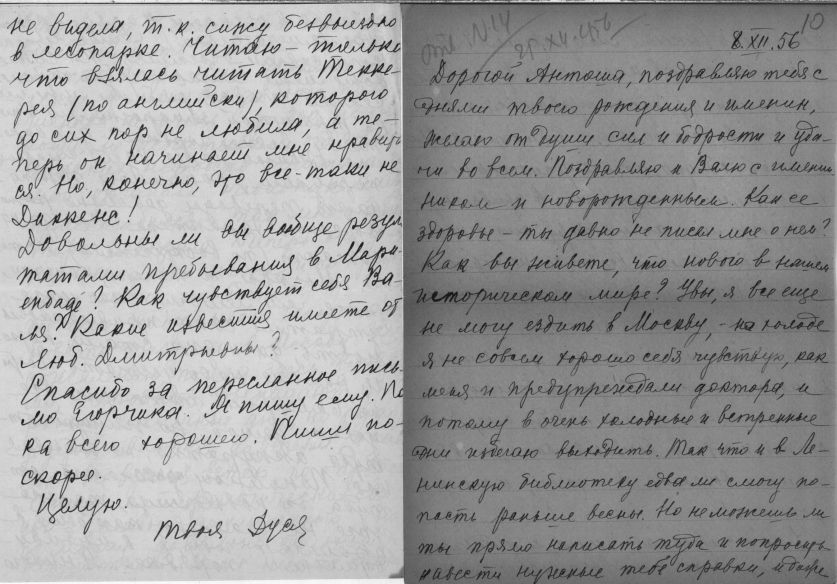 не видела, т.к. сижу безвыездно
в лесопарке. Читаю – только
что взялась читать Текке-
рея (по английски), которого
до сих пор не любила, а те-
перь он начинает мне нравить
ся. Но, конечно, это все-таки не
Диккенс!
Довольны ли вы вообще резуль
татами пребывания в Мари-
енбаде? Как чувствует себя Ва-
ля? Какие известия имеете от
Люб. Дмитриевны?
Спасибо за пересланное пись-
мо Егорчика. Я пишу ему. По
ка всего хорошего. Пиши по-
скорее.
Целую.
Твоя Дуся
10
отв. N14
25.XII.456
8.XII.56
Дорогой Антоша, поздравляю тебя с
днями твоего рождения и именин,
желаю от души сил и бодрости и уда-
чи во всем. Поздравляю и Валю с именин
ником и новорожденным. Как ее
здоровье – ты давно не писал мне о нем?
Как вы живете, что нового в нашем
историческом мире? Увы, я все еще
не могу ездить в Москву, – на холоде
я не совсем хорошо себя чувствую, как
меня и предупреждали доктора, и
потому в очень холодные и ветренные
дни избегаю выходить. Так что и в Ле-
нинскую библиотеку едва ли смогу по-
пасть раньше весны. Но не можешь ли
ты прямо написать туда и попросить
навести нужные тебе справки, и даже